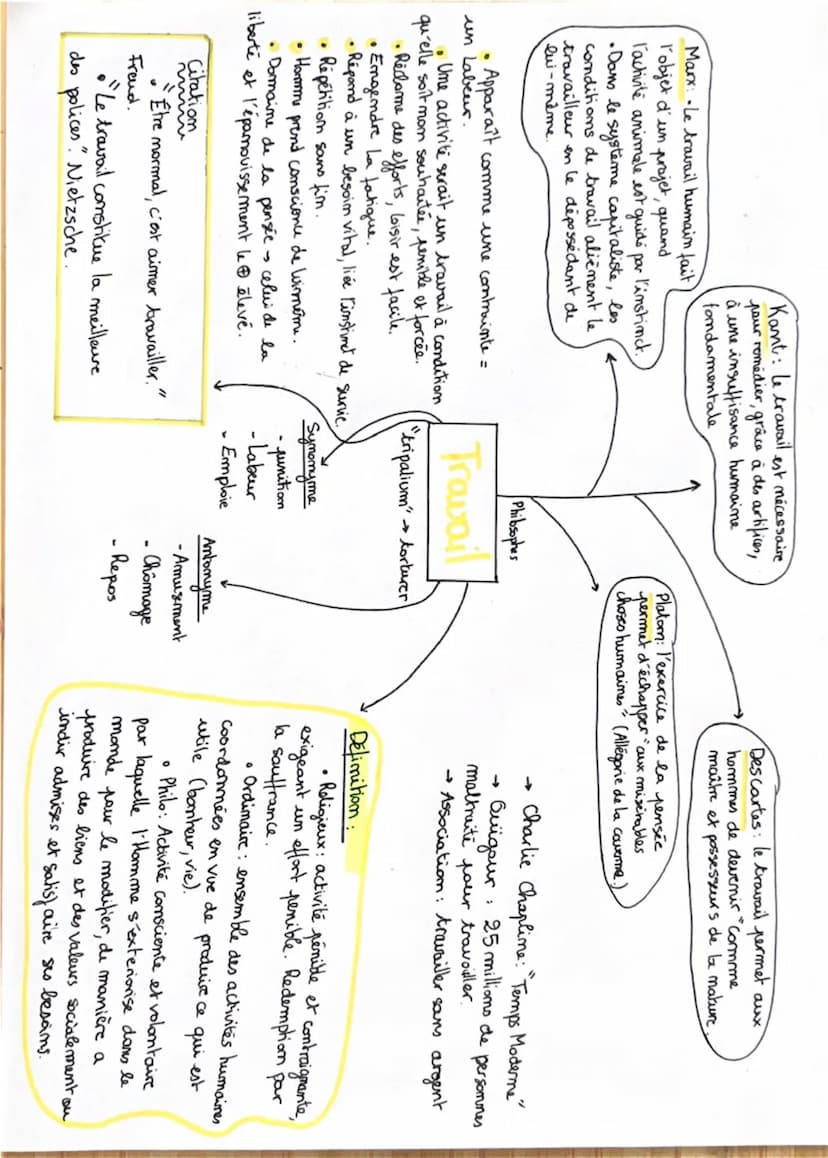 Travail
"tripalium" → torturer
Philsophes
Marx : • Le travail humain fait
l'objet d'un projet, quand
l'activité animale est guidé par l'instinct.
• Dans le système capitaliste, les
conditions de travail aliènent le
travailleur en le dépossédant de
lui-même.
Kant : le travail est nécessaire
pour remédier, grâce à des artifices,
à une insuffisance humaine
fondamentale
Platon : l'exercice de la pensée
permet d'échapper "aux misérables
choses humaines" (Allégorie de la caverne.)
Descartes : le travail permet aux
hommes de devenir "comme
maître et possesseurs de la nature.
• Apparaît comme une contrainte =
un Labeur.
• Une activité serait un travail à condition
qu'elle soit non souhaitée, pénible et forcée.
• Réclame des efforts, loisir est facile.
• Engendre la fatigue.
• Répond à un besoin vital, liée l'instinct de survie.
• Répétition sans fin.
• Homme prend conscience de lui-même.
• Domaine de la pensée → celui de la
liberté et l'épanouissement le ⊕ élevé.
→ Charlie Chapline : "Temps Moderne"
→ Ouïgour : 25 millions de personnes
maltraité pour travailler.
→ Association : travailler sans argent
Citation
• "Être normal, c'est aimer travailler."
Freud.
• "Le travail constitue la meilleure
des polices". Nietzsche.
Synonyme
- punition
- Labeur
- Emploie
Antonyme
- Amusement
- Chômage
- Repos
Définition :
• Religieux : activité pénible et contraignante,
exigeant un effort pénible. Redemption par
la souffrance.
• Ordinaire : ensemble des activités humaines
coordonnées en vue de produire ce qui est
utile (bonheur, vie).
• Philo : Activité consciente et volontaire
par laquelle l'Homme s'exteriorise dans le
monde pour le modifier, de manière a
produire des biens et des valeurs socialement ou
indiv admises et satisfaire ses besoins.